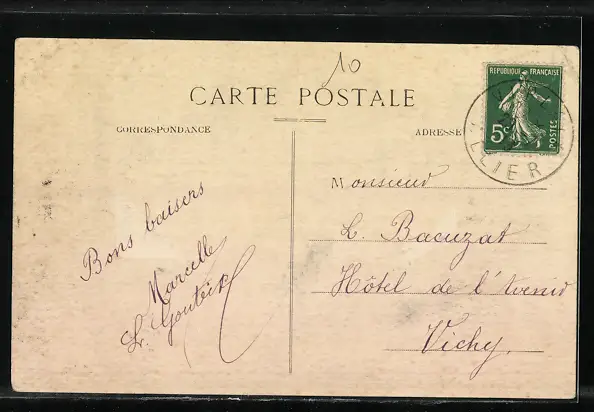 10
CARTE POSTALE
CORRESPONDANCE
ADRESSE
REPUBLIQUE FRANÇAISE
5c
POSTES
LLIER
Bons baisers
Marcelle
Monsieur
L. Bacuzat
Hôtel de l'Avenir
Vichy.